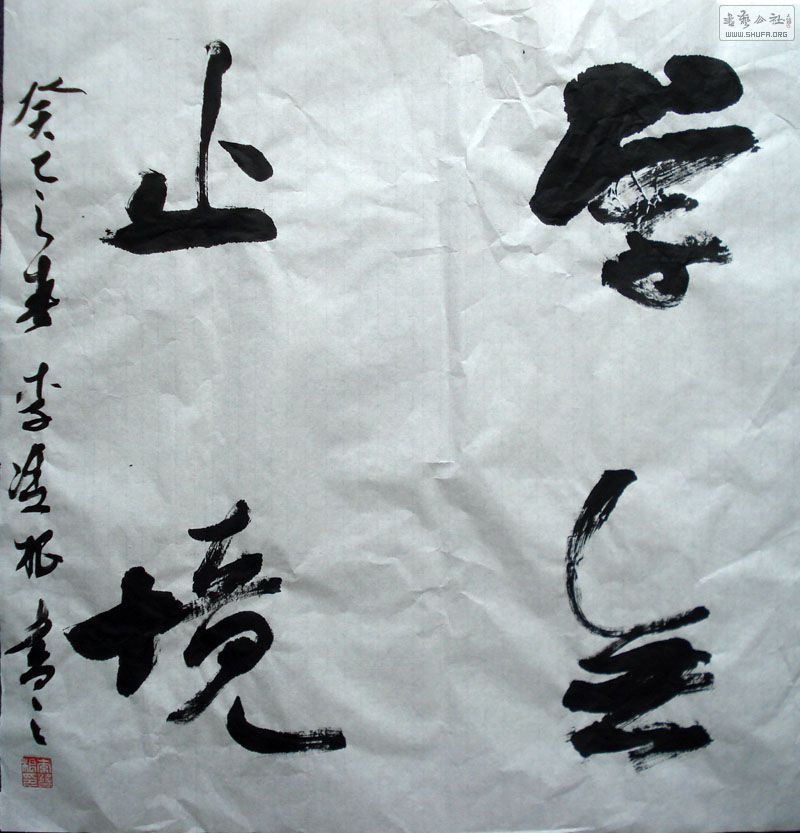 学无
止境
癸巳之春 李凌根书之
书艺公社
WWW.SHUFA.ORG